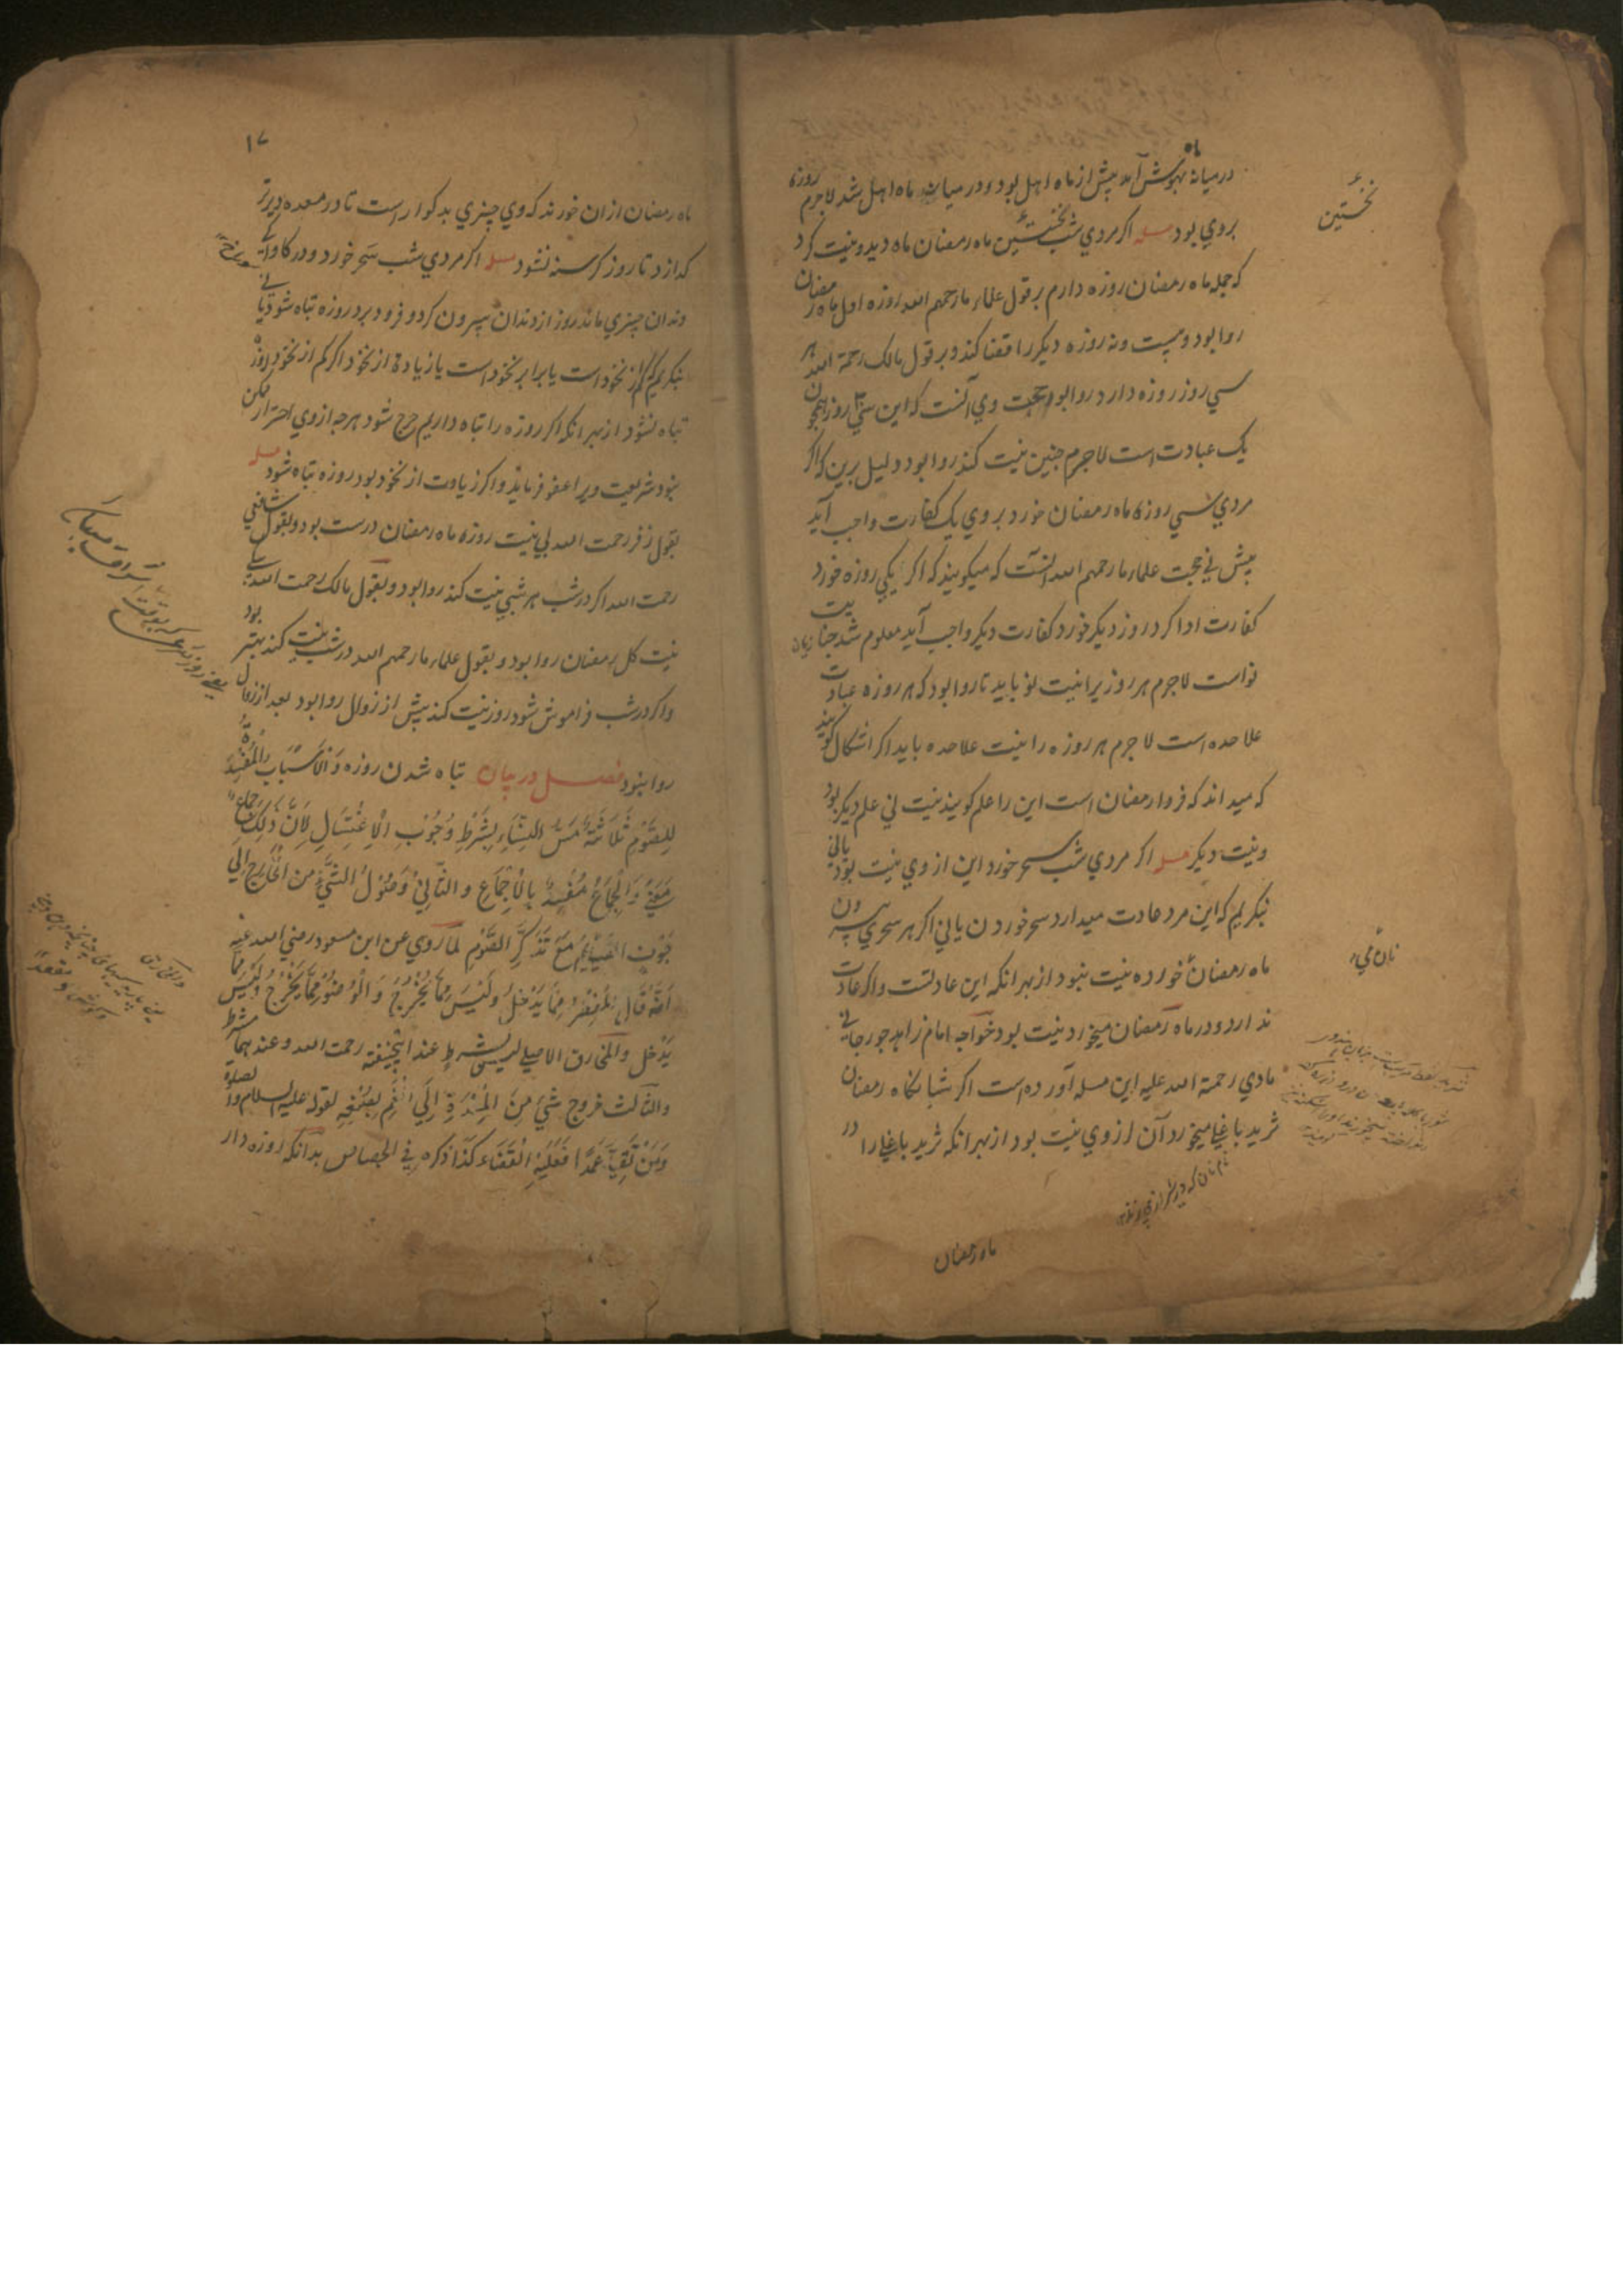 درمیانه بهوش آمد پیش از ماه اهل بود و درمیانه ماه اهل شد لاجرم روزه
بروی بود مسله اگر مردی شب نخستین ماه رمضان ماه دید و نیت کرد
که جمله ماه رمضان روزه دارم بر قول علماء ما رحمهم الله روزه اول ماه رمضان
روا بود و بیست و نه روزه دیگر را قضا کند و بر قول مالک رحمة الله هر
سی روز روزه دارد روا بود حجت وی آنست که این سی روز همچون
یک عبادت است لاجرم چنین نیت کند روا بود دلیل برین که اگر
مردی سی روزه ماه رمضان خورد بروی یک کفارت واجب آید
بیش نی حجت علماء ما رحمهم الله آنست که میگویند که اگر یکی روزه خورد
کفارت ادا کرد روز دیگر خورد کفارت دیگر واجب آید معلوم شد
نو است لاجرم هر روز یرا نیت نو باید تا روا بود که هر روزه عبادت
علاحده است لاجرم هر روزه را نیت علاحده باید اگر اشکال گویند
که میداند که فردا رمضان است این را علم گویند نیت نی علم دیگر بود
و نیت دیگر مسله اگر مردی شب سحر خورد این از وی نیت بود یا نی
بنگریم که این مرد عادت میدارد سحر خوردن یا نی اگر هر سحری بیرون
ماه رمضان خورده نیت نبود از بهر آنکه این عادتست و اگر عادت
ندارد و در ماه رمضان میخورد نیت بود خواجه امام زاهد جورجانی
مادی رحمة الله علیه این مسله آورده است اگر شبانگاه رمضان
ثرید باغلی میخورد آن از وی نیت بود از بهر آنکه ثرید باغلی را در
ماه رمضان
نخستین
نان می
۱۷
ماه رمضان از آن خورند که وی چیزی بدگوار است تا در معده دیرتر
گدازد تا روز گرسنه نشود مسله اگر مردی شب سحر خورد و در
دندان چیزی ماند روز از دندان بیرون کرد و فرو برد روزه تباه شود یا نی
بنگریم که کم از نخود است یا برابر نخود است یا زیاده از نخود اگر کم از نخود بود روزه
تباه نشود از بهر آنکه اگر روزه را تباه داریم حرج شود هرچه از وی احتراز ممکن
نبود شریعت ویرا عفو فرماید و اگر زیادت از نخود بود روزه تباه شود مسله
بقول زفر رحمت الله بی نیت روزه ماه رمضان درست بود و بقول شافعی
رحمت الله اگر در شب هر شبی نیت کند روا بود و بقول مالک رحمت الله
نیت کل رمضان روا بود و بقول علماء ما رحمهم الله در شب نیت کند بهتر بود
و اگر در شب فراموش شود روز نیت کند پیش از زوال روا بود بعد از زوال
روا نبود فصل در بیان تباه شدن روزه وَالْأَسْبَابُ الْمُفْسِدَةُ
لِلصَّوْمِ ثَلَاثَةٌ مَسُّ النِّسَاءِ بِشَرْطِ وُجُوْبِ الْاِغْتِسَالِ لِاَنَّ ذٰلِكَ جِمَاعٌ
مَعْنًى وَالْجِمَاعُ مُفْسِدٌ بِالْاِجْمَاعِ وَالثَّانِيْ وُصُوْلُ الشَّيْءِ مِنَ الْخَارِجِ اِلٰي
جَوْفِ الصَّائِمِ مَعَ تَذَكُّرِ الصَّوْمِ لِمَا رُوِيَ عَنِ ابْنِ مسعود رضي الله عنه
اَنَّهُ قَالَ اَلْفِطْرُ مِمَّا يَدْخُلُ وَلَيْسَ مِمَّا يَخْرُجُ وَالْوُضُوْءُ مِمَّا يَخْرُجُ وَلَيْسَ مِمَّا
يَدْخُلُ والمخارق الاصلي ليس بشرط عند ابيحنيفة رحمت الله وعندهما شرط
والثالث خروج شيء مِنَ الْمِعْدَةِ اِلَي الْفَمِ بِصُنْعِهِ لقوله عليه الصلوة والسلام
وَمَنْ تَقَيَّأَ عَمْدًا فَعَلَيْهِ الْقَضَاءُ كَذَا ذَكَرَهُ فِي الجصاص بدانکه روزه دار